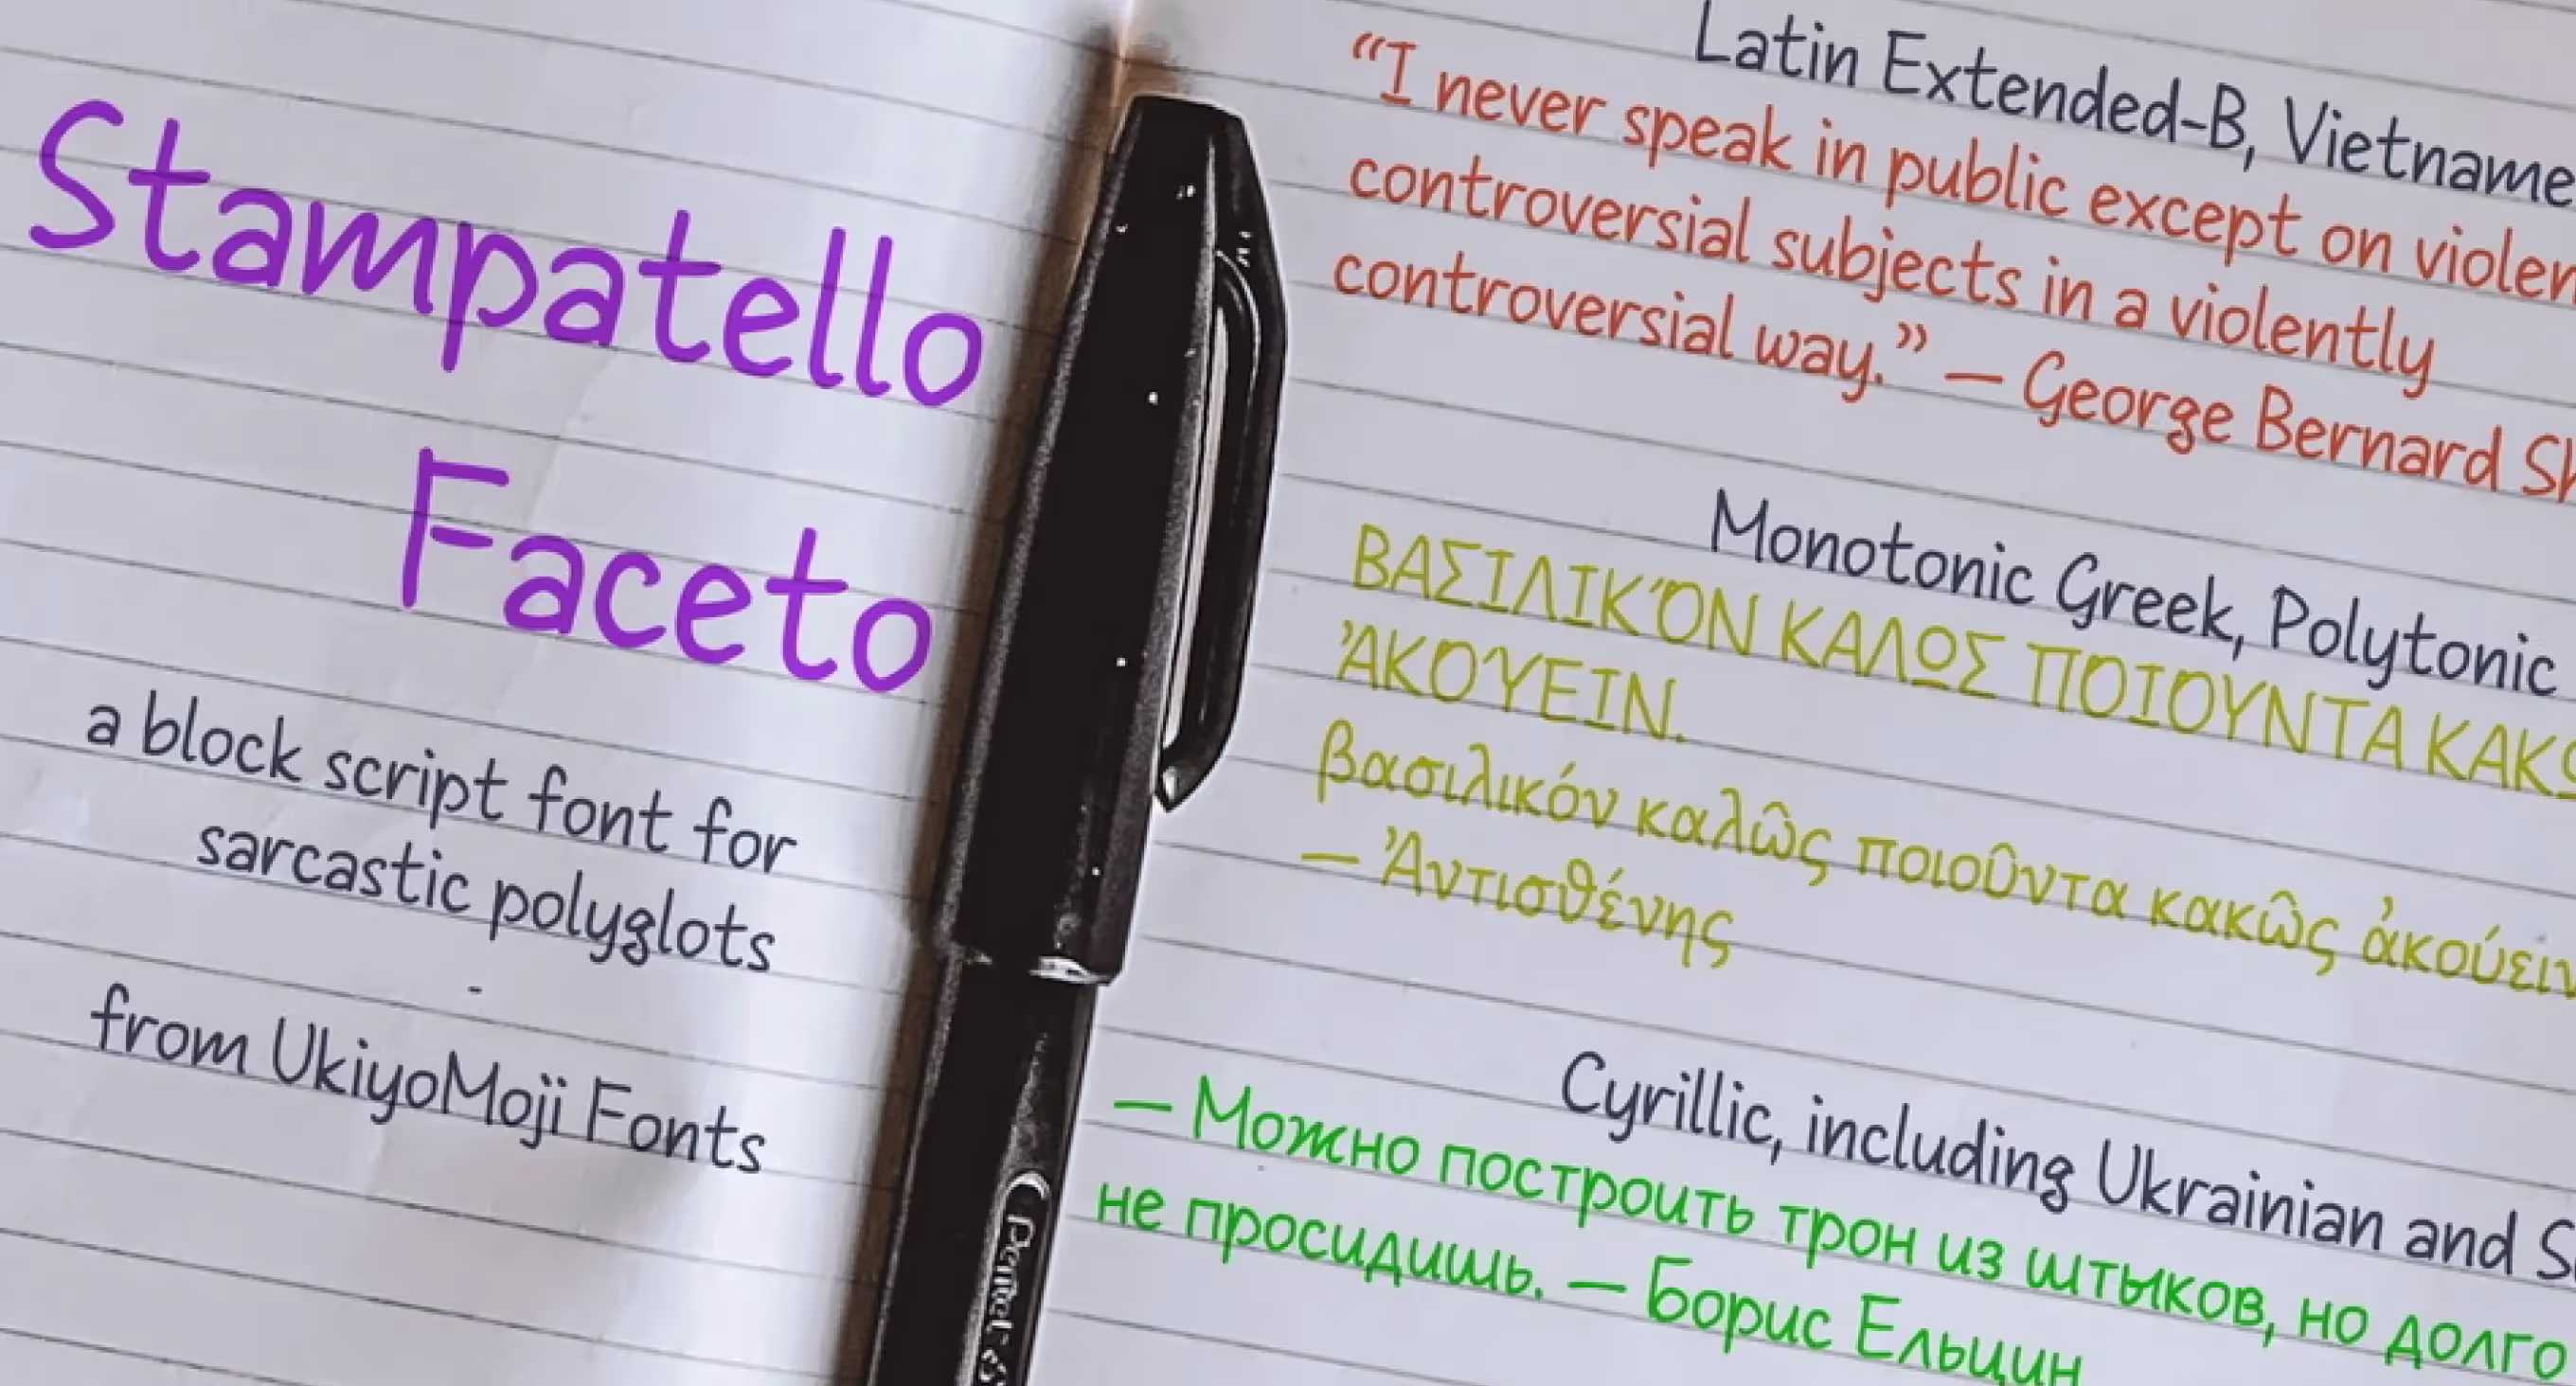 Stampatello
Faceto
a block script font for
sarcastic polyglots
-
from UkiyoMoji Fonts
Pentel
Latin Extended-B,
“I never speak in public except on
controversial subjects in a violently
controversial way.” — George Bernard
Monotonic Greek, Polytonic
ΒΑΣΙΛΙΚΌΝ ΚΑΛΩΣ ΠΟΙΟΥΝΤΑ
ἈΚΟΎΕΙΝ.
βασιλικόν καλῶς ποιοῦντα κακῶς ἀκούειν
— Ἀντισθένης
Cyrillic, including Ukrainian and
— Можно построить трон из штыков, но долго
не просидишь. — Борис Ельцин